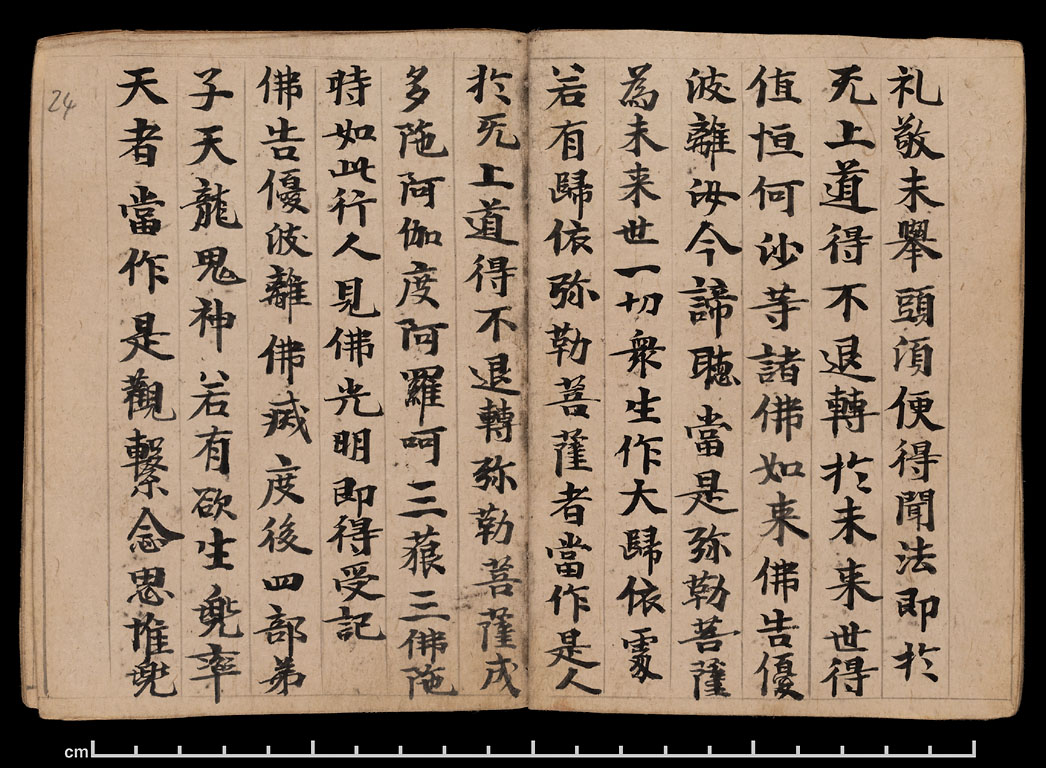 礼敬未舉頭湏便得聞法即扵
无上道得不退轉扵未来世得
值恒何沙等諸佛如来佛告優
波離汝今諦聽當是弥勒菩薩
為未来世一切衆生作大歸依處
若有歸依弥勒菩薩者當作是人
扵无上道得不退轉弥勒菩薩成
多陁阿伽度阿羅呵三藐三佛陁
時如此行人見佛光明即得受記
佛告優波離佛滅度後四部弟
子天龍鬼神若有欲生兜率
天者當作是觀繫念思惟兜
24
cm